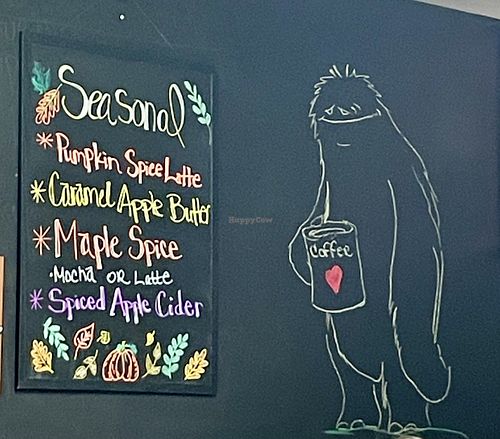 Seasonal
* Pumpkin Spice Latte
* Caramel Apple Butter
* Maple Spice
• Mocha OR Latte
* Spiced Apple Cider
Coffee
HappyCow